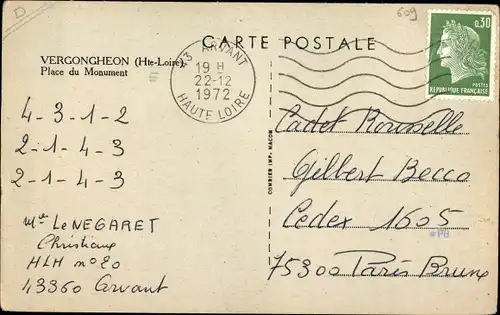 D
609
CARTE POSTALE
VERGONGHEON (Hte-Loire)
Place du Monument
43 ARVANT
19 H
22-12
1972
HAUTE LOIRE
0,30
POSTES
REPUBLIQUE FRANÇAISE
4-3-1-2
2-1-4-3
2-1-4-3
Mlle LeNEGARET
Christiane
HLM n°20
43360 Arvant
COMBIER IMP. MACON
Cadet Rousselle
Gilbert Becco
Cedex 1605
PB
75300 Paris Brune